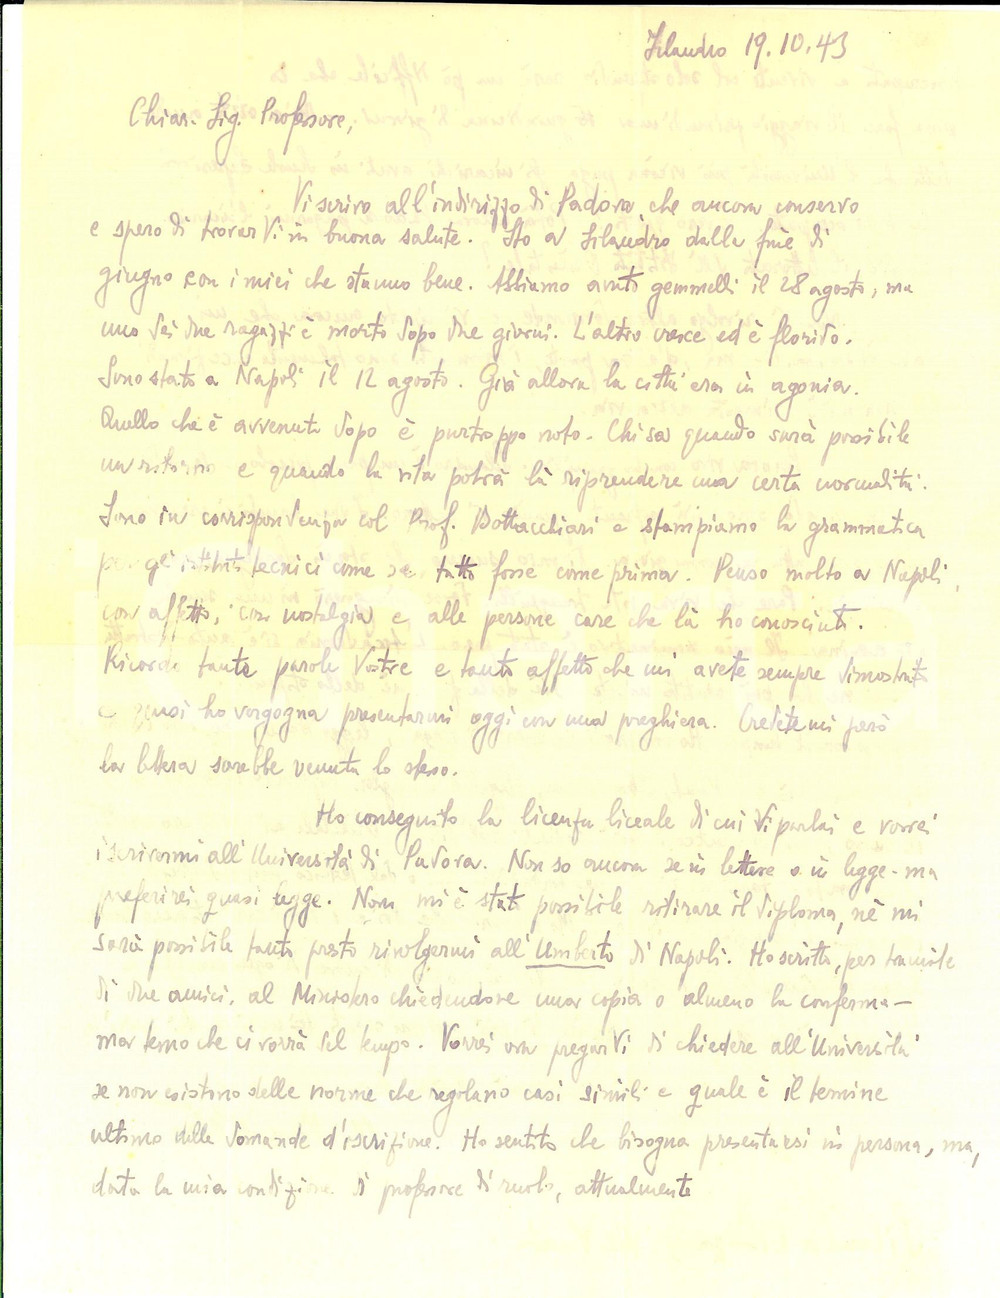 Silandro 19.10.43
Chiar. Sig. Professore,
Vi scrivo all'indirizzo di Padova, che ancora conservo
e spero di trovarVi in buona salute. Sto a Silandro dalla fine di
giugno con i miei che stanno bene. Abbiamo avuto gemmelli il 28 agosto, ma
uno dei due ragazzi è morto dopo due giorni. L'altro cresce ed è florido.
Sono stato a Napoli il 12 agosto. Già allora la città era in agonia.
Quello che è avvenuto dopo è purtroppo noto. Chi sa quando sarà possibile
un ritorno e quando la vita potrà là riprendere una certa normalità.
Sono in corrispondenza col Prof. Bottacchiari e stampiamo la grammatica
per gli istituti tecnici come se tutto fosse come prima. Penso molto a Napoli,
con affetto, con nostalgia e alle persone care che là ho conosciuto.
Ricordo tante parole Vostre e tanto affetto che mi avete sempre dimostrato
e quasi ho vergogna presentarmi oggi con una preghiera. Credetemi però
la lettera sarebbe venuta lo stesso.
Ho conseguito la licenza liceale di cui Vi parlai e vorrei
iscrivermi all'Università di Padova. Non so ancora se in lettere o in legge - ma
preferirei quasi legge. Non mi è stato possibile ritirare il diploma, nè mi
sarà possibile tanto presto rivolgermi all'Umberto di Napoli. Ho scritto, per tramite
di due amici, al Ministero chiedendone una copia o almeno la conferma -
ma temo che ci vorrà del tempo. Vorrei ora pregarVi di chiedere all'Università
se non esistono delle norme che regolano casi simili e quale è il termine
ultimo delle domande d'iscrizione. Ho sentito che bisogna presentarsi in persona, ma,
data la mia condizione di professore di ruolo, attualmente